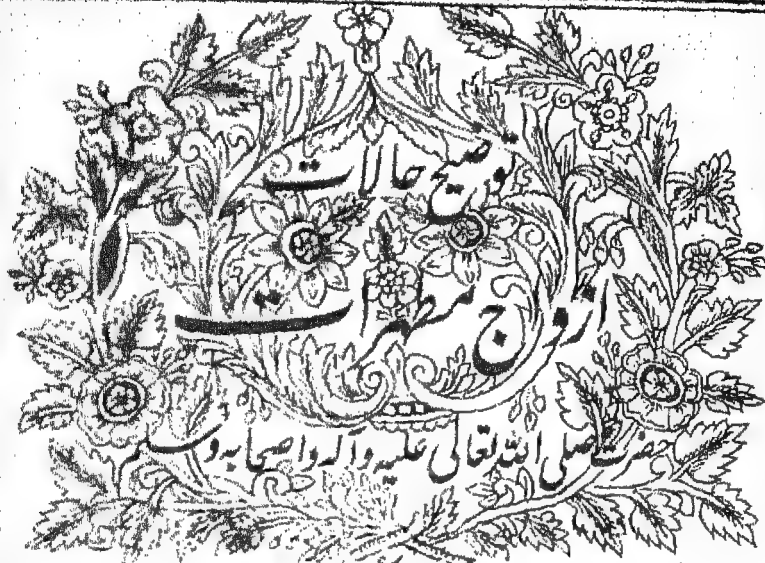 توضیح حالات
ازواج مطہرات
حضرت صلی اللہ تعالی علیہ وآلہ واصحابہ وسلم